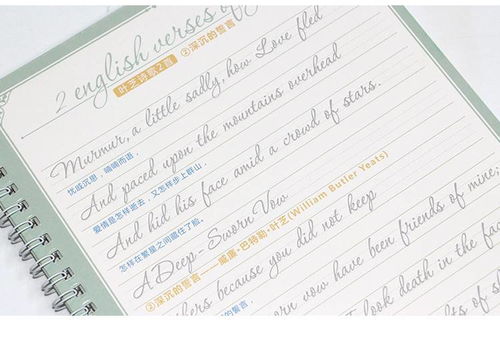 2 english verses of
叶芝诗歌之吾 ②深沉的誓言
Murmur, a little sadly, how Love fled
忧戚沉思,喃喃而语,
And paced upon the mountains overhead
爱情是怎样逝去,又怎样步上群山,
And hid his face amid a crowd of stars.
怎样在繁星之间藏住了脸。
A Deep-Sworn Vow
②深沉的誓言 ——威廉·巴特勒·叶芝(William Butler Yeats)
thers because you did not keep
sworn vow have been friends of mine;
的誓言,
I look death in the fac